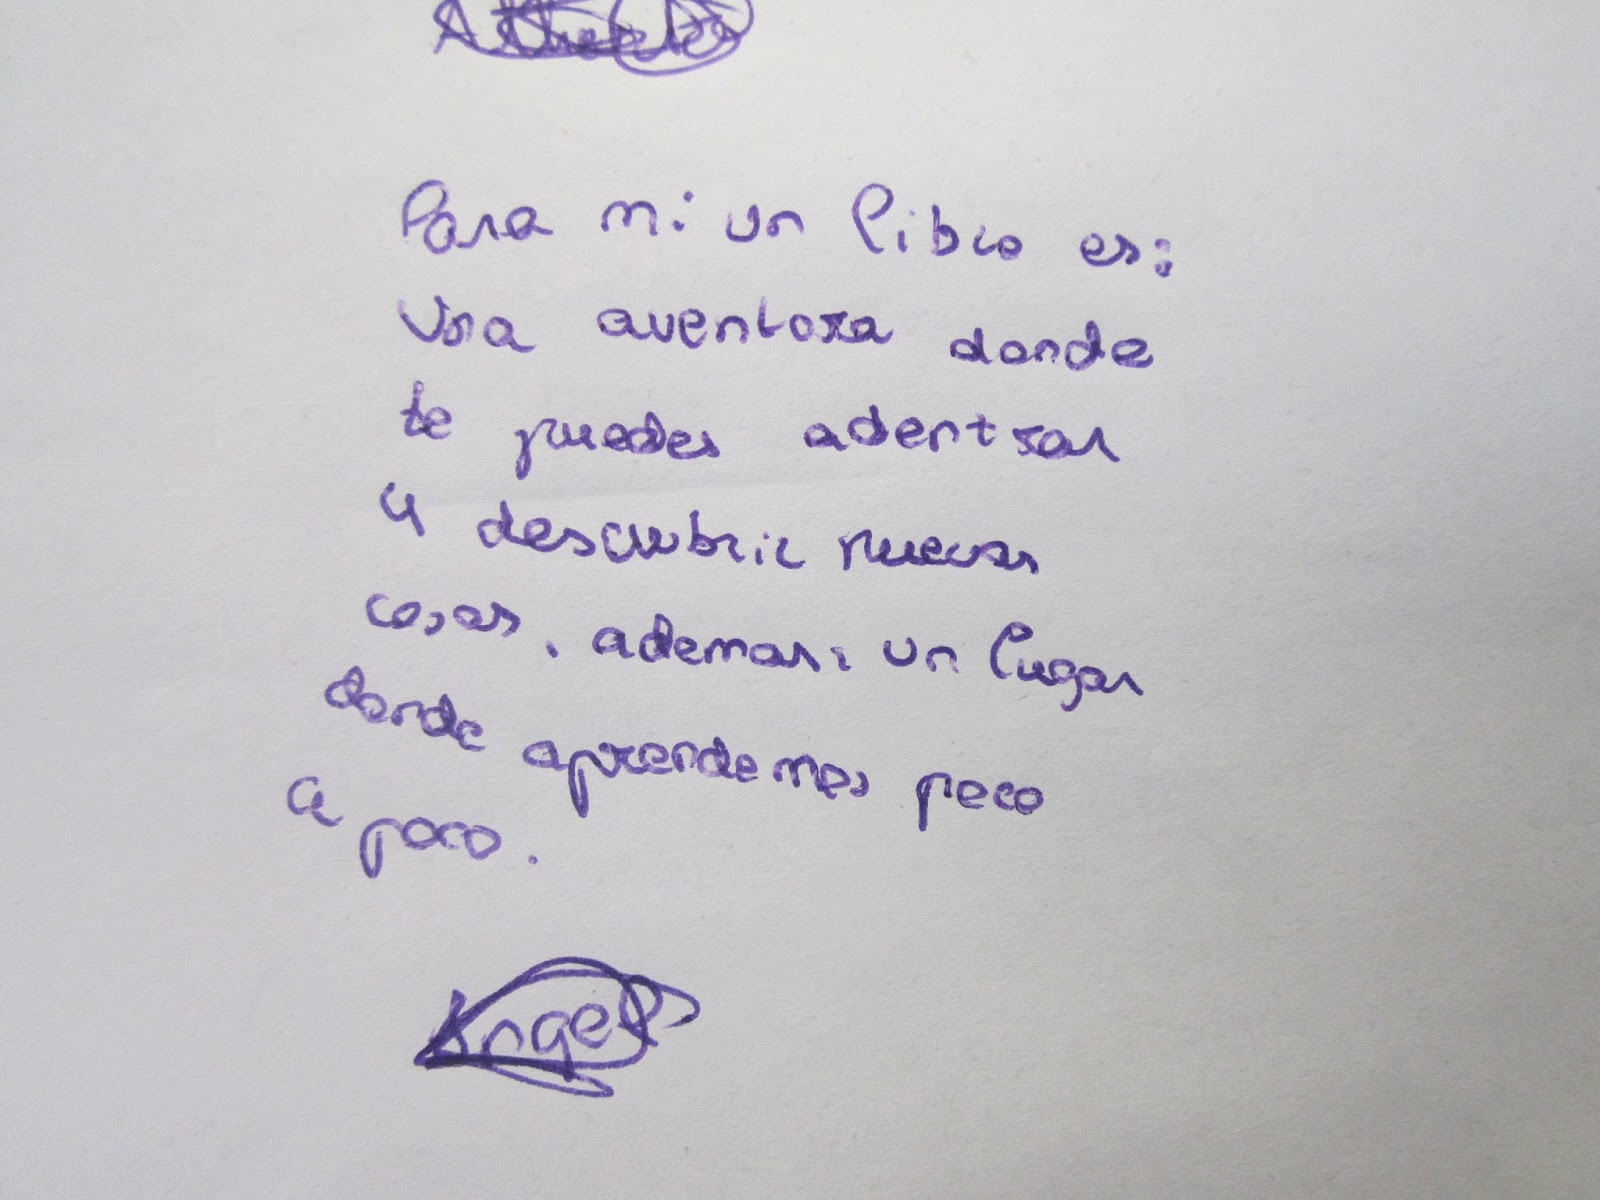 Para mi un libro es:
Una aventura donde
te puedes adentrar
y descubrir nuevas
cosas. ademas: un lugar
donde aprendemos poco
a poco.
Angel